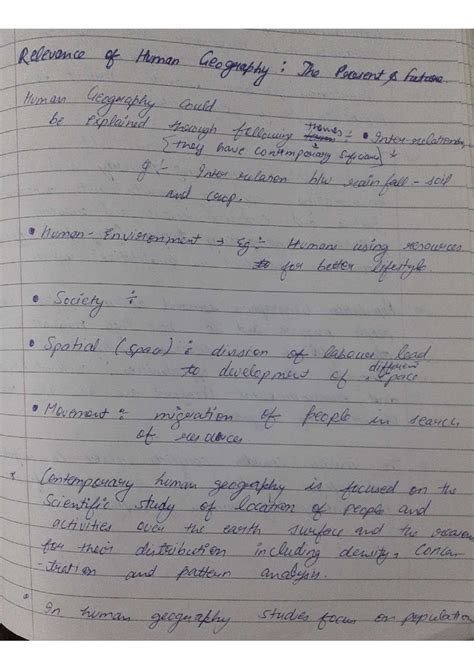 Relevance of Human Geography : The Present & Future
Human Geography could
be explained through following themes : • Inter-relation
{they have contemporary
g :- Inter relation b/w rainfall - soil
and crop.
• Human - Environment → Eg :- Humans using resources
for better lifestyle
• Society :
• Spatial (space) : division of labour lead
to development of different space
• Movement : migration of people in search
of resources
Contemporary human geography is focused on the
scientific study of location of people and
activities over the earth surface and the reason
for their distribution including density, concen
-tration and pattern analysis.
• In human geography studies focus on population